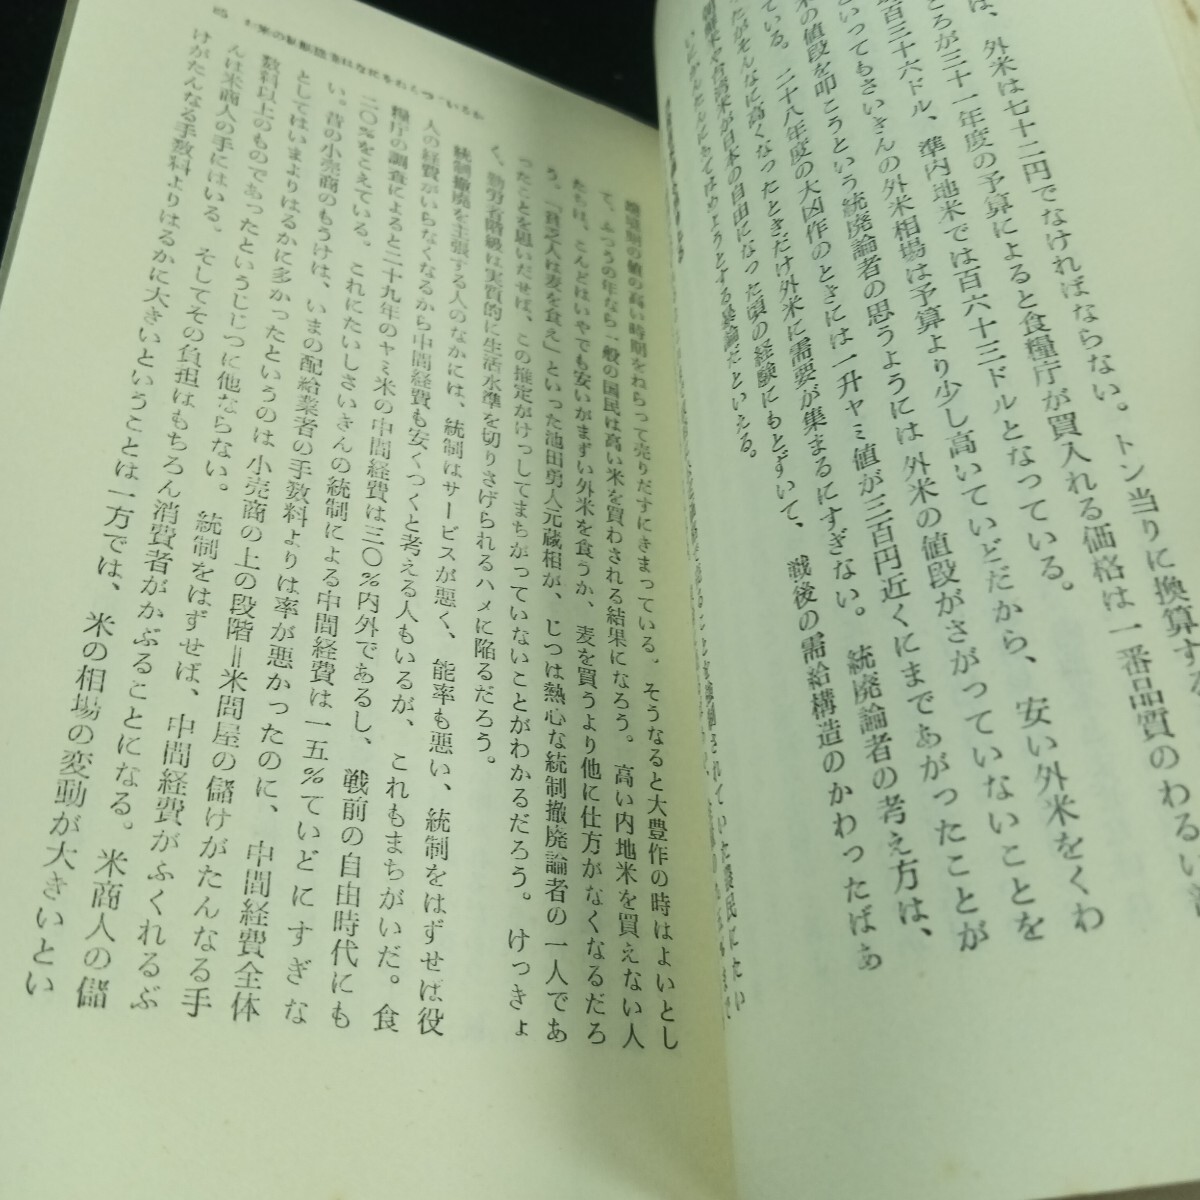 は、外米は七十二円でなければならない。トン当りに換算する
ころが三十一年度の予算によると食糧庁が買入れる価格は一番品質のわるい
百三十六ドル、準内地米では百六十三ドルとなっている。
といってもさいきんの外米相場は予算より少し高いていどだから、安い外米をくわ
米の値段を叩こうという統廃論者の思うようには外米の値段がさがっていないことを
ている。二十八年度の大凶作のときには一升ヤミ値が三百円近くにまであがったことが
だがそんなに高くなったときだけ外米に需要が集まるにすぎない。統廃論者の考え方は、
朝鮮米や台湾米が日本の自由になった頃の経験にもとずいて、戦後の需給構造のかわったばあ
いにかんたんにあてはめようとする暴論だといえる。
端境期の値の高い時期をねらって売りだすにきまっている。そうなると大豊作の時はよいとし
て、ふつうの年なら一般の国民は高い米を買わされる結果になろう。高い内地米を買えない人
たちは、こんどはいやでも安いがまずい外米を食うか、麦を買うより他に仕方がなくなるだろ
う。「貧乏人は麦を食え」といった池田勇人元蔵相が、じつは熱心な統制撤廃論者の一人であ
ったことを思いだせば、この推定がけっしてまちがっていないことがわかるだろう。けっきょ
く、勤労者階級は実質的に生活水準を切りさげられるハメに陥るだろう。
統制撤廃を主張する人のなかには、統制はサービスが悪く、能率も悪い、統制をはずせば役
人の経費がいらなくなるから中間経費も安くつくと考える人もいるが、これもまちがいだ。食
糧庁の調査によると二十九年のヤミ米の中間経費は三〇％内外であるし、戦前の自由時代にも
二〇％をこえている。これにたいしさいきんの統制による中間経費は一五％ていどにすぎな
い。昔の小売商のもうけは、いまの配給業者の手数料よりは率が悪かったのに、中間経費全体
としてはいまよりはるかに多かったというのは小売商の上の段階＝米問屋の儲けがたんなる手
数料以上のものであったというじじつに他ならない。統制をはずせば、中間経費がふくれるぶ
んは米商人の手にはいる。そしてその負担はもちろん消費者がかぶることになる。米商人の儲
けがたんなる手数料よりはるかに大きいということは一方では、米の相場の変動が大きいとい